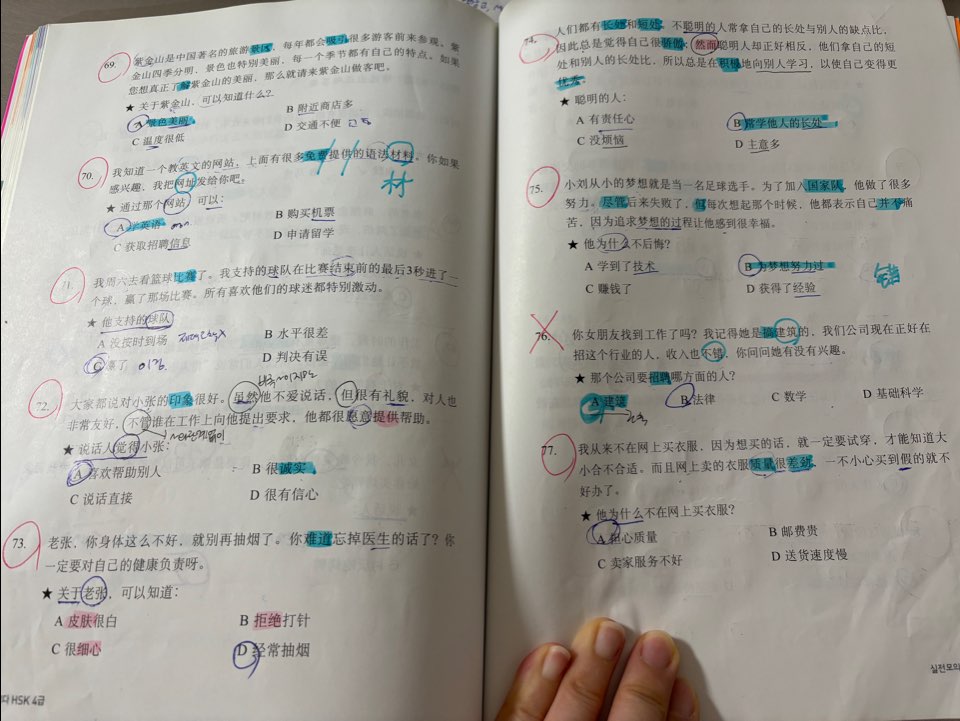 69. 紫金山是中国著名的旅游景区，每年都会吸引很多游客前来参观。紫
金山四季分明，景色也特别美丽，每一个季节都有自己的特点。如果
您想真正了解紫金山的美丽，那么就请来紫金山做客吧。
★ 关于紫金山，可以知道什么？
A 景色美丽 B 附近商店多
C 温度很低 D 交通不便
70. 我知道一个教英文的网站，上面有很多免费提供的语法材料。你如果
感兴趣，我把网址发给你吧。
材
★ 通过那个网站，可以：
A 学英语 B 购买机票
C 获取招聘信息 D 申请留学
71. 我周六去看篮球比赛了。我支持的球队在比赛结束前的最后3秒进了一
个球，赢了那场比赛。所有喜欢他们的球迷都特别激动。
★ 他支持的球队
A 没按时到场 B 水平很差
C 赢了 이기다 D 判决有误
72. 大家都说对小张的印象很好。虽然他不爱说话，但很有礼貌，对人也
非常友好，不管谁在工作上向他提出要求，他都很愿意提供帮助。
★ 说话人觉得小张：
A 喜欢帮助别人 B 很诚实
C 说话直接 D 很有信心
73. 老张，你身体这么不好，就别再抽烟了。你难道忘掉医生的话了？你
一定要对自己的健康负责呀。
★ 关于老张，可以知道：
A 皮肤很白 B 拒绝打针
C 很细心 D 经常抽烟
HSK 4급
74. 人们都有长处和短处，不聪明的人常拿自己的长处与别人的缺点比，
因此总是觉得自己很骄傲；然而聪明人却正好相反，他们拿自己的短
处和别人的长处比，所以总是在积极地向别人学习，以使自己变得更
优秀。
★ 聪明的人：
A 有责任心 B 常学他人的长处
C 没烦恼 D 主意多
75. 小刘从小的梦想就是当一名足球选手。为了加入国家队，他做了很多
努力。尽管后来失败了，但每次想起那个时候，他都表示自己并不痛
苦，因为追求梦想的过程让他感到很幸福。
★ 他为什么不后悔？
A 学到了技术 B 为梦想努力过
C 赚钱了 D 获得了经验
错
76. 你女朋友找到工作了吗？我记得她是搞建筑的，我们公司现在正好在
招这个行业的人，收入也不错，你问问她有没有兴趣。
★ 那个公司要招聘哪方面的人？
A 建筑 B 法律 C 数学 D 基础科学
77. 我从来不在网上买衣服，因为想买的话，就一定要试穿，才能知道大
小合不合适。而且网上卖的衣服质量很差劲，一不小心买到假的就不
好办了。
★ 他为什么不在网上买衣服？
A 担心质量 B 邮费贵
C 卖家服务不好 D 送货速度慢
실전모의